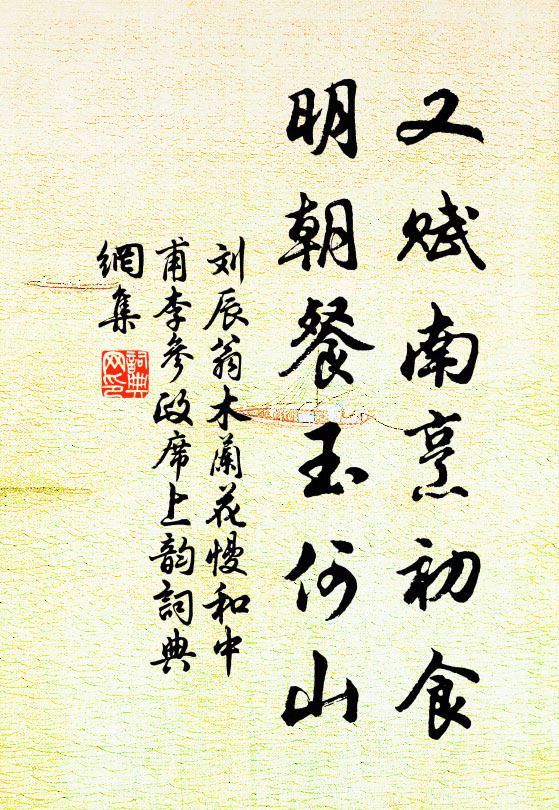 又赋南烹初食
明朝餐玉何山
刘辰翁木蘭花慢和中
甫李參政席上韵詞典
網集
詞典
网印